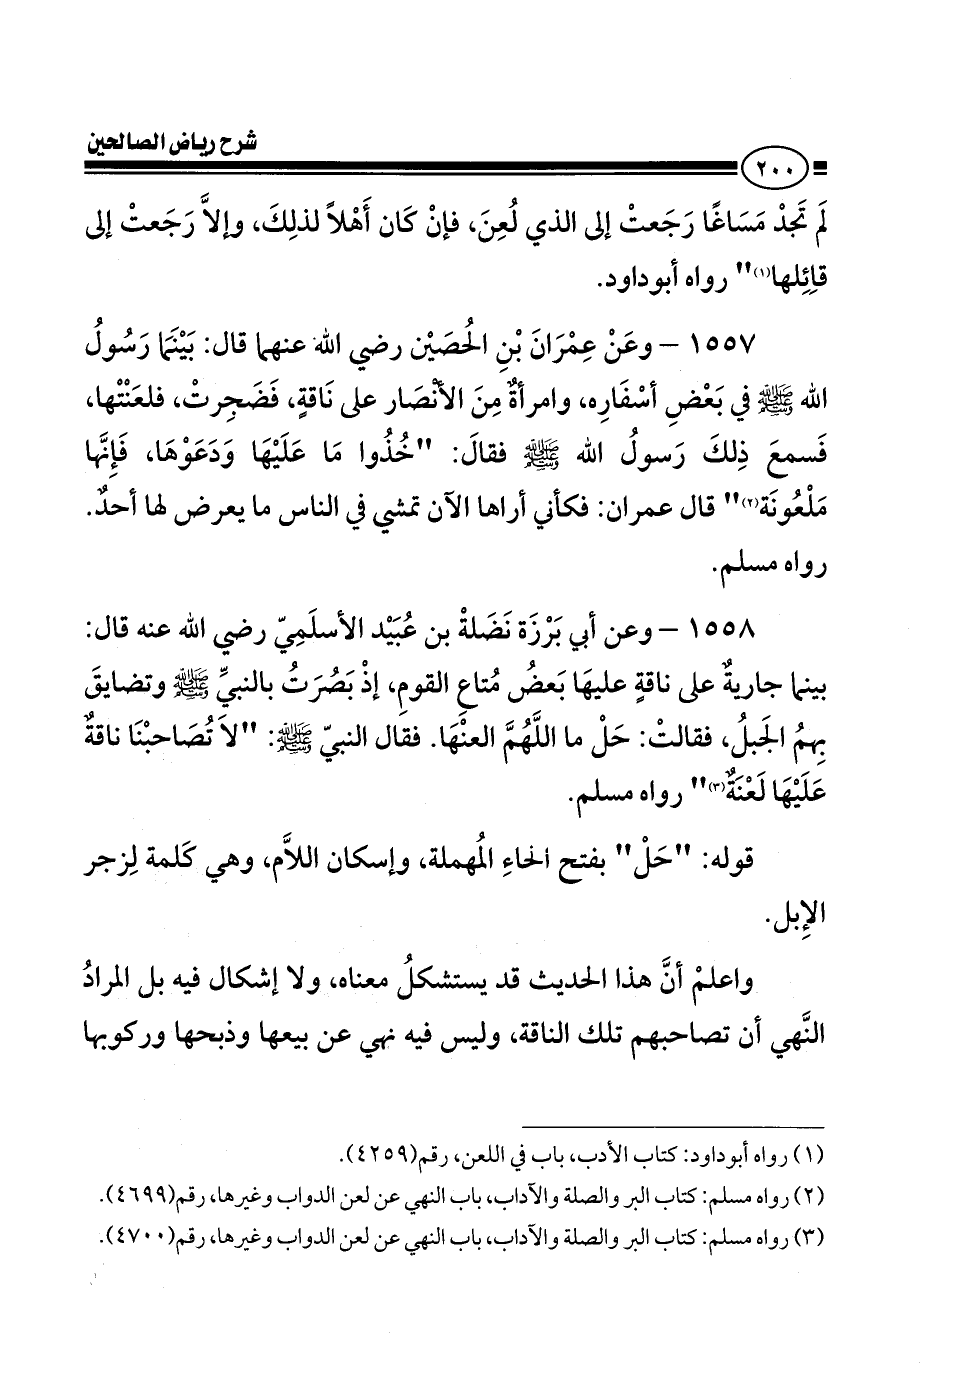 شرح رياض الصالحين
٢٠٠
لَم تَجدْ مَسَاغًا رَجَعتْ إلى الذي لُعِنَ، فإنْ كَان أَهْلاً لذلِكَ، وإلاَّ رَجَعتْ إلى
قائِلها(١)" رواه أبوداود.
١٥٥٧ – وعَنْ عِمْرَانَ بْنِ الحُصَيْن رضي الله عنهما قال: بَيْنَمَا رَسُولُ
الله ﷺ في بَعْضِ أسْفَارِه، وامرأةٌ مِنَ الأنْصَار على نَاقةٍ، فَضَجِرتْ، فلعَنْتها،
فَسمعَ ذِلكَ رَسولُ الله ﷺ فقالَ: "خُذُوا مَا عَلَيْهَا وَدَعَوْهَا، فَإِنَّها
مَلْعُونَة(٢)" قال عمران: فكأني أراها الآن تمشي في الناس ما يعرض لها أحدٌ.
رواه مسلم.
١٥٥٨ – وعن أبي بَرْزَة نَضَلةْ بن عُبَيْد الأسلَمِيّ رضي الله عنه قال:
بينما جاريةٌ على ناقةٍ عليهَا بَعضُ مُتاعِ القومِ، إذْ بَصُرَتُ بالنبيِّ ﷺ وتضايقَ
بِهمُ الجَبلُ، فقالتْ: حَلْ ما اللَّهُمَّ العنْهَا. فقال النبيّ ﷺ: "لاَ تُصَاحبْنَا ناقةٌ
عَلَيْهَا لَعْنَةٌ(٣)" رواه مسلم.
قوله: "حَلْ" بفتح الحاءِ المُهملة، وإسكان اللاَّم، وهي كَلمة لِزجر
الإِبل.
واعلمْ أنَّ هذا الحديث قد يستشكلُ معناه، ولا إشكال فيه بل المرادُ
النَّهي أن تصاحبهم تلك الناقة، وليس فيه نهي عن بيعها وذبحها وركوبها
(١) رواه أبوداود: كتاب الأدب، باب في اللعن، رقم(٤٢٥٩).
(٢) رواه مسلم: كتاب البر والصلة والآداب، باب النهي عن لعن الدواب وغيرها، رقم(٤٦٩٩).
(٣) رواه مسلم: كتاب البر والصلة والآداب، باب النهي عن لعن الدواب وغيرها، رقم(٤٧٠٠).